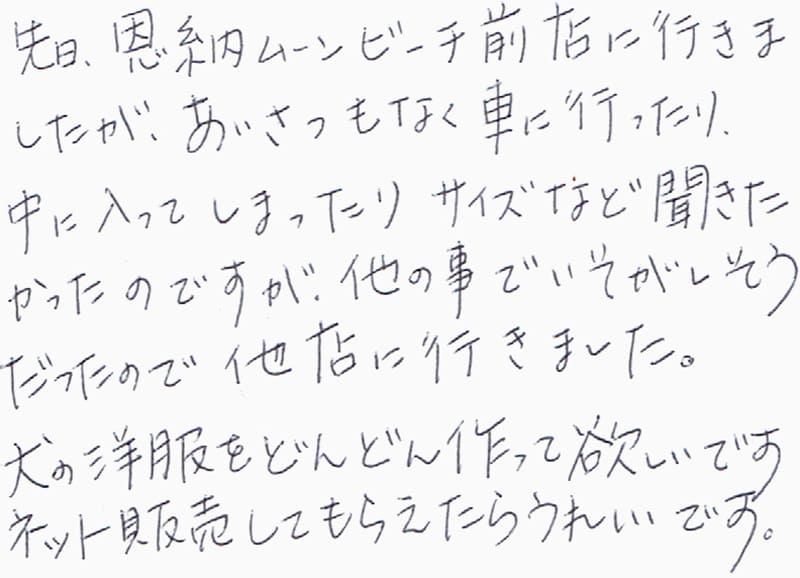 先日、恩納ムーンビーチ前店に行きま
したが、あいさつもなく車に行ったり、
中に入ってしまったりサイズなど聞きた
かったのですが、他の事でいそがしそう
だったので他店に行きました。
犬の洋服をどんどん作って欲しいです
ネット販売してもらえたらうれしいです。